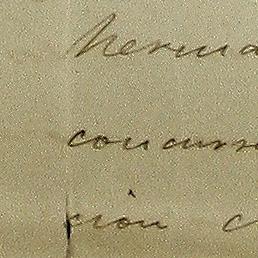 herma
concurr
ción c